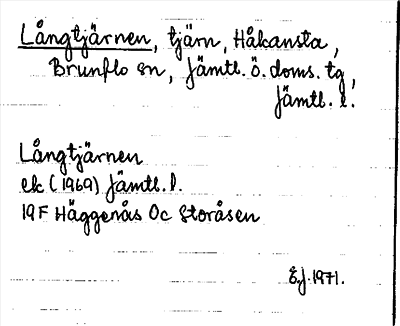 Långtjärnen, tjärn, Håkansta,
Brunflo sn, Jämtl. ö. doms. tg,
Jämtl. l.
Långtjärnen
ek (1969) Jämtl. l.
19F Häggenås Oc Storåsen
E.J. 1971.